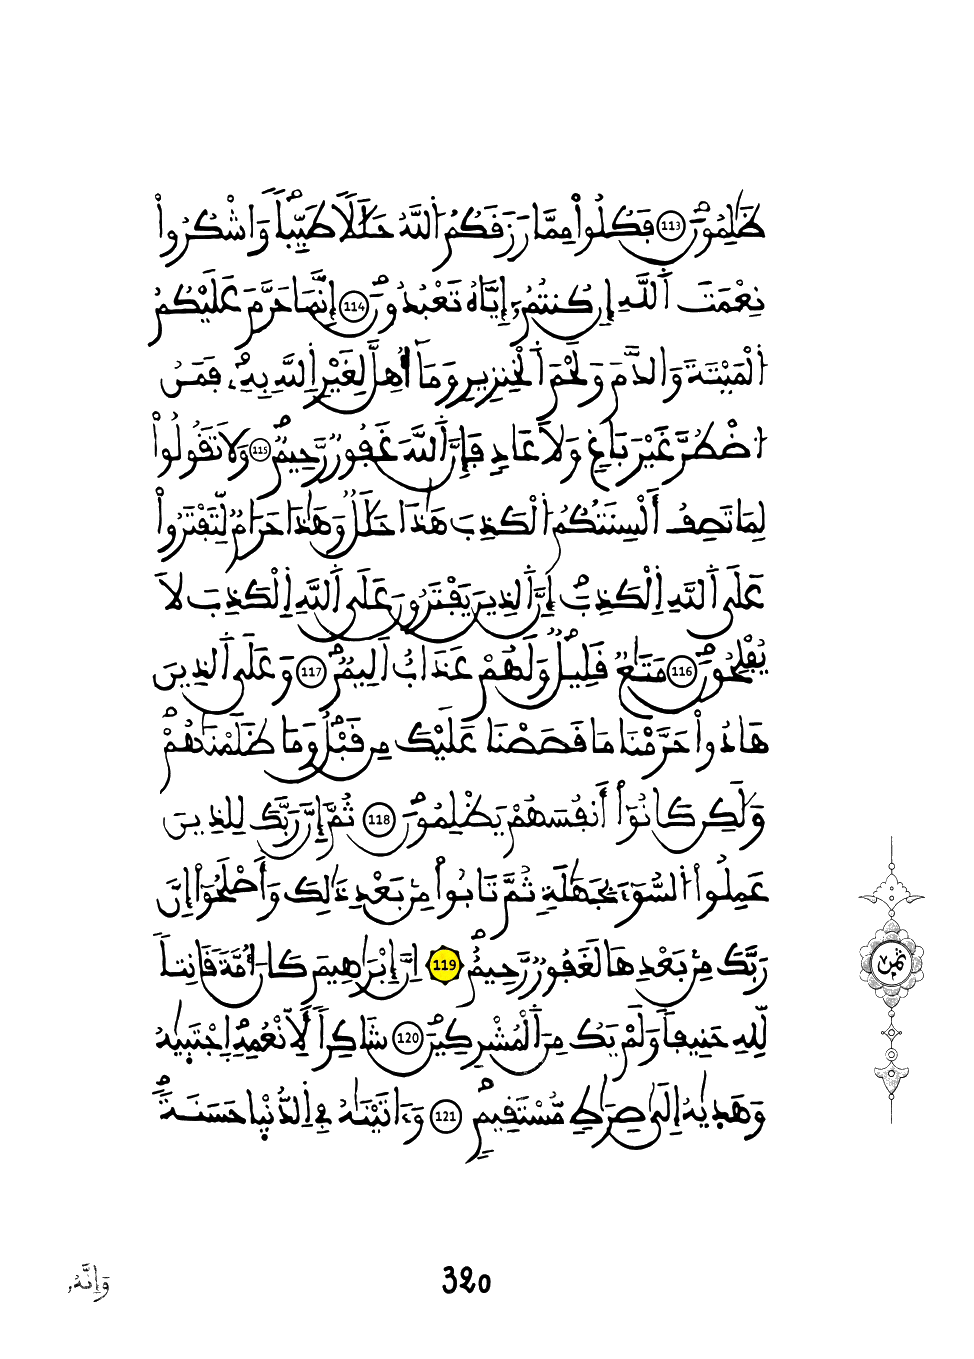 ظَٰلِمُونَ 113 فَكُلُواْ مِمَّا رَزَقَكُمُ اُ۬للَّهُ حَلَٰلٗا طَيِّباٗ وَاشْكُرُواْ
نِعْمَتَ اَ۬للَّهِ إِن كُنتُمُۥٓ إِيَّاهُ تَعْبُدُونَ 114 إِنَّمَا حَرَّمَ عَلَيْكُمُ
اُ۬لْمَيْتَةَ وَالدَّمَ وَلَحْمَ اَ۬لْخِنزِيرِ وَمَآ أُهِلَّ لِغَيْرِ اِ۬للَّهِ بِهِۦ فَمَنُ
اُ۟ضْطُرَّ غَيْرَ بَاغٖ وَلَا عَادٖ فَإِنَّ اَ۬للَّهَ غَفُورٞ رَّحِيمٞ 115 وَلَا تَقُولُواْ
لِمَا تَصِفُ أَلْسِنَتُكُمُ اُ۬لْكَذِبَ هَٰذَا حَلَٰلٞ وَهَٰذَا حَرَامٞ لِّتَفْتَرُواْ
عَلَى اَ۬للَّهِ اِ۬لْكَذِبَۖ إِنَّ اَ۬لذِينَ يَفْتَرُونَ عَلَى اَ۬للَّهِ اِ۬لْكَذِبَ لَا
يُفْلِحُونَ 116 مَتَٰعٞ قَلِيلٞ وَلَهُمْ عَذَابٌ أَلِيمٞ 117 وَعَلَى اَ۬لذِينَ
هَادُواْ حَرَّمْنَا مَا قَصَصْنَا عَلَيْكَ مِن قَبْلُ وَمَا ظَلَمْنَٰهُمْ
وَلَٰكِن كَانُوٓاْ أَنفُسَهُمْ يَظْلِمُونَ 118 ثُمَّ إِنَّ رَبَّكَ لِلذِينَ
عَمِلُواْ اُ۬لسُّوٓءَ بِجَهَٰلَةٖ ثُمَّ تَابُواْ مِنۢ بَعْدِ ذَٰلِكَ وَأَصْلَحُوٓاْ إِنَّ
رَبَّكَ مِنۢ بَعْدِهَا لَغَفُورٞ رَّحِيمٌ 119 اِنَّ إِبْرَٰهِيمَ كَانَ أُمَّةٗ قَانِتاٗ
لِّلهِ حَنِيفاٗ وَلَمْ يَكُ مِنَ اَ۬لْمُشْرِكِينَ 120 شَاكِراٗ لِّأَنْعُمِهِ اِ۪جْتَبَيٰهُ
وَهَدَيٰهُ إِلَىٰ صِرَٰطٖ مُّسْتَقِيمٖ 121 وَءَاتَيْنَٰهُ فِي اِ۬لدُّنْيَا حَسَنَةٗۖ
ثمن
وَإِنَّهُۥ
320